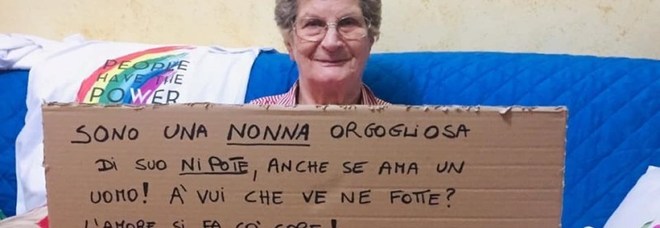 PEOPLE
HAVE THE
POWER
SONO UNA NONNA ORGOGLIOSA
DI SUO NIPOTE, ANCHE SE AMA UN
UOMO! A' VUI CHE VE NE FOTTE?
L'AMORE SI FA CO' CORE!